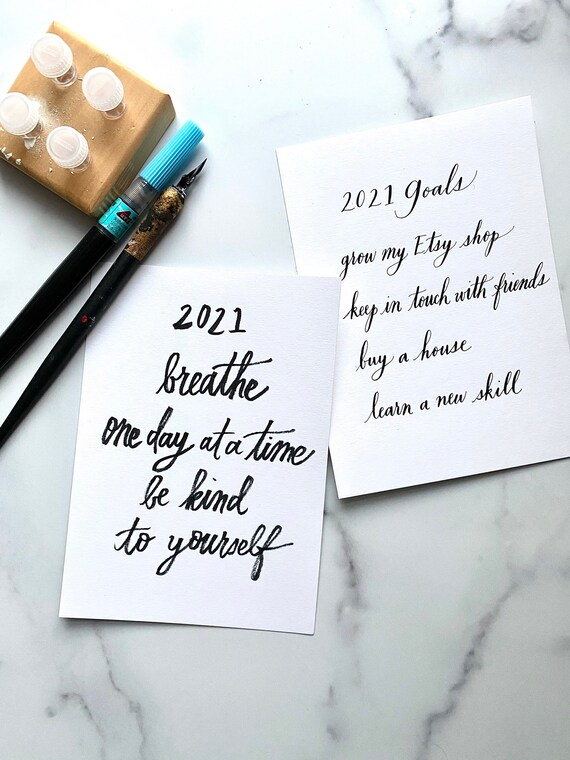 2021
breathe
one day at a time
be kind
to yourself
2021 goals
grow my Etsy shop
keep in touch with friends
buy a house
learn a new skill